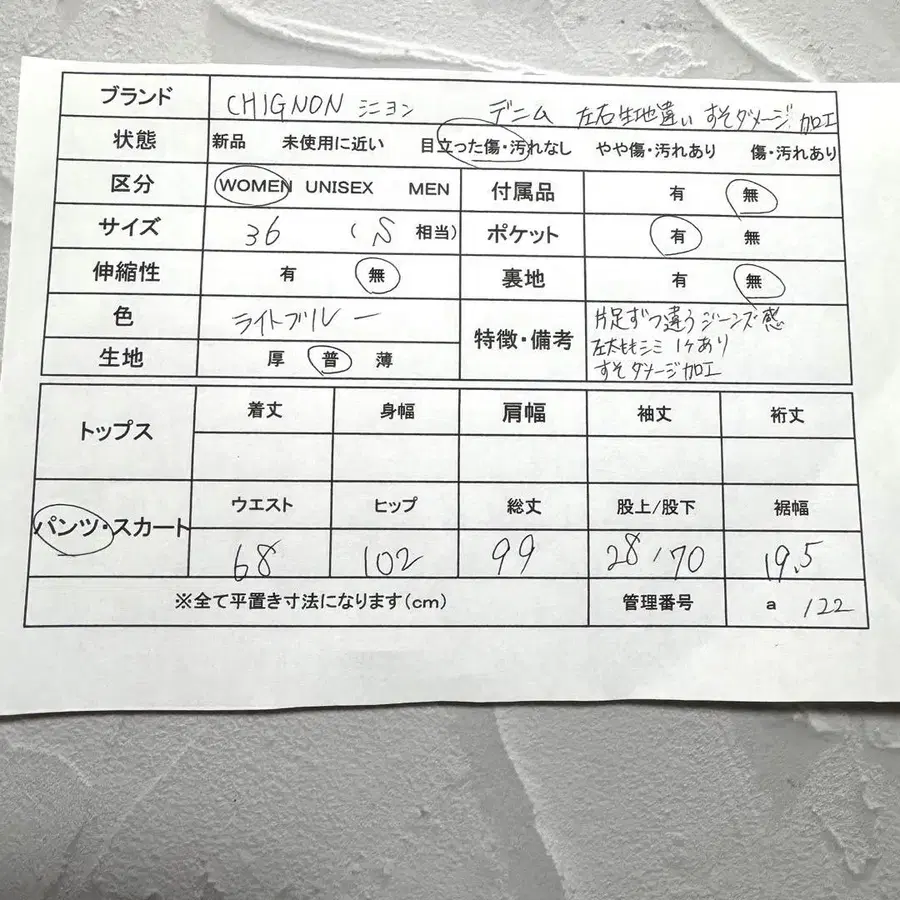 ブランド CHIGNON シニヨン デニム 左右生地違い すそダメージ加工
状態 新品 未使用に近い 目立った傷・汚れなし やや傷・汚れあり 傷・汚れあり
区分 WOMEN UNISEX MEN 付属品 有 無
サイズ 36 (S 相当) ポケット 有 無
伸縮性 有 無 裏地 有 無
色 ライトブルー 特徴・備考 片足ずつ違うジーンズ感
左太ももシミ1ケあり
すそダメージ加工
生地 厚 普 薄
トップス 着丈 身幅 肩幅 袖丈 裄丈
パンツ・スカート ウエスト ヒップ 総丈 股上/股下 裾幅
68 102 99 28/70 19.5
※全て平置き寸法になります(cm) 管理番号 a 122